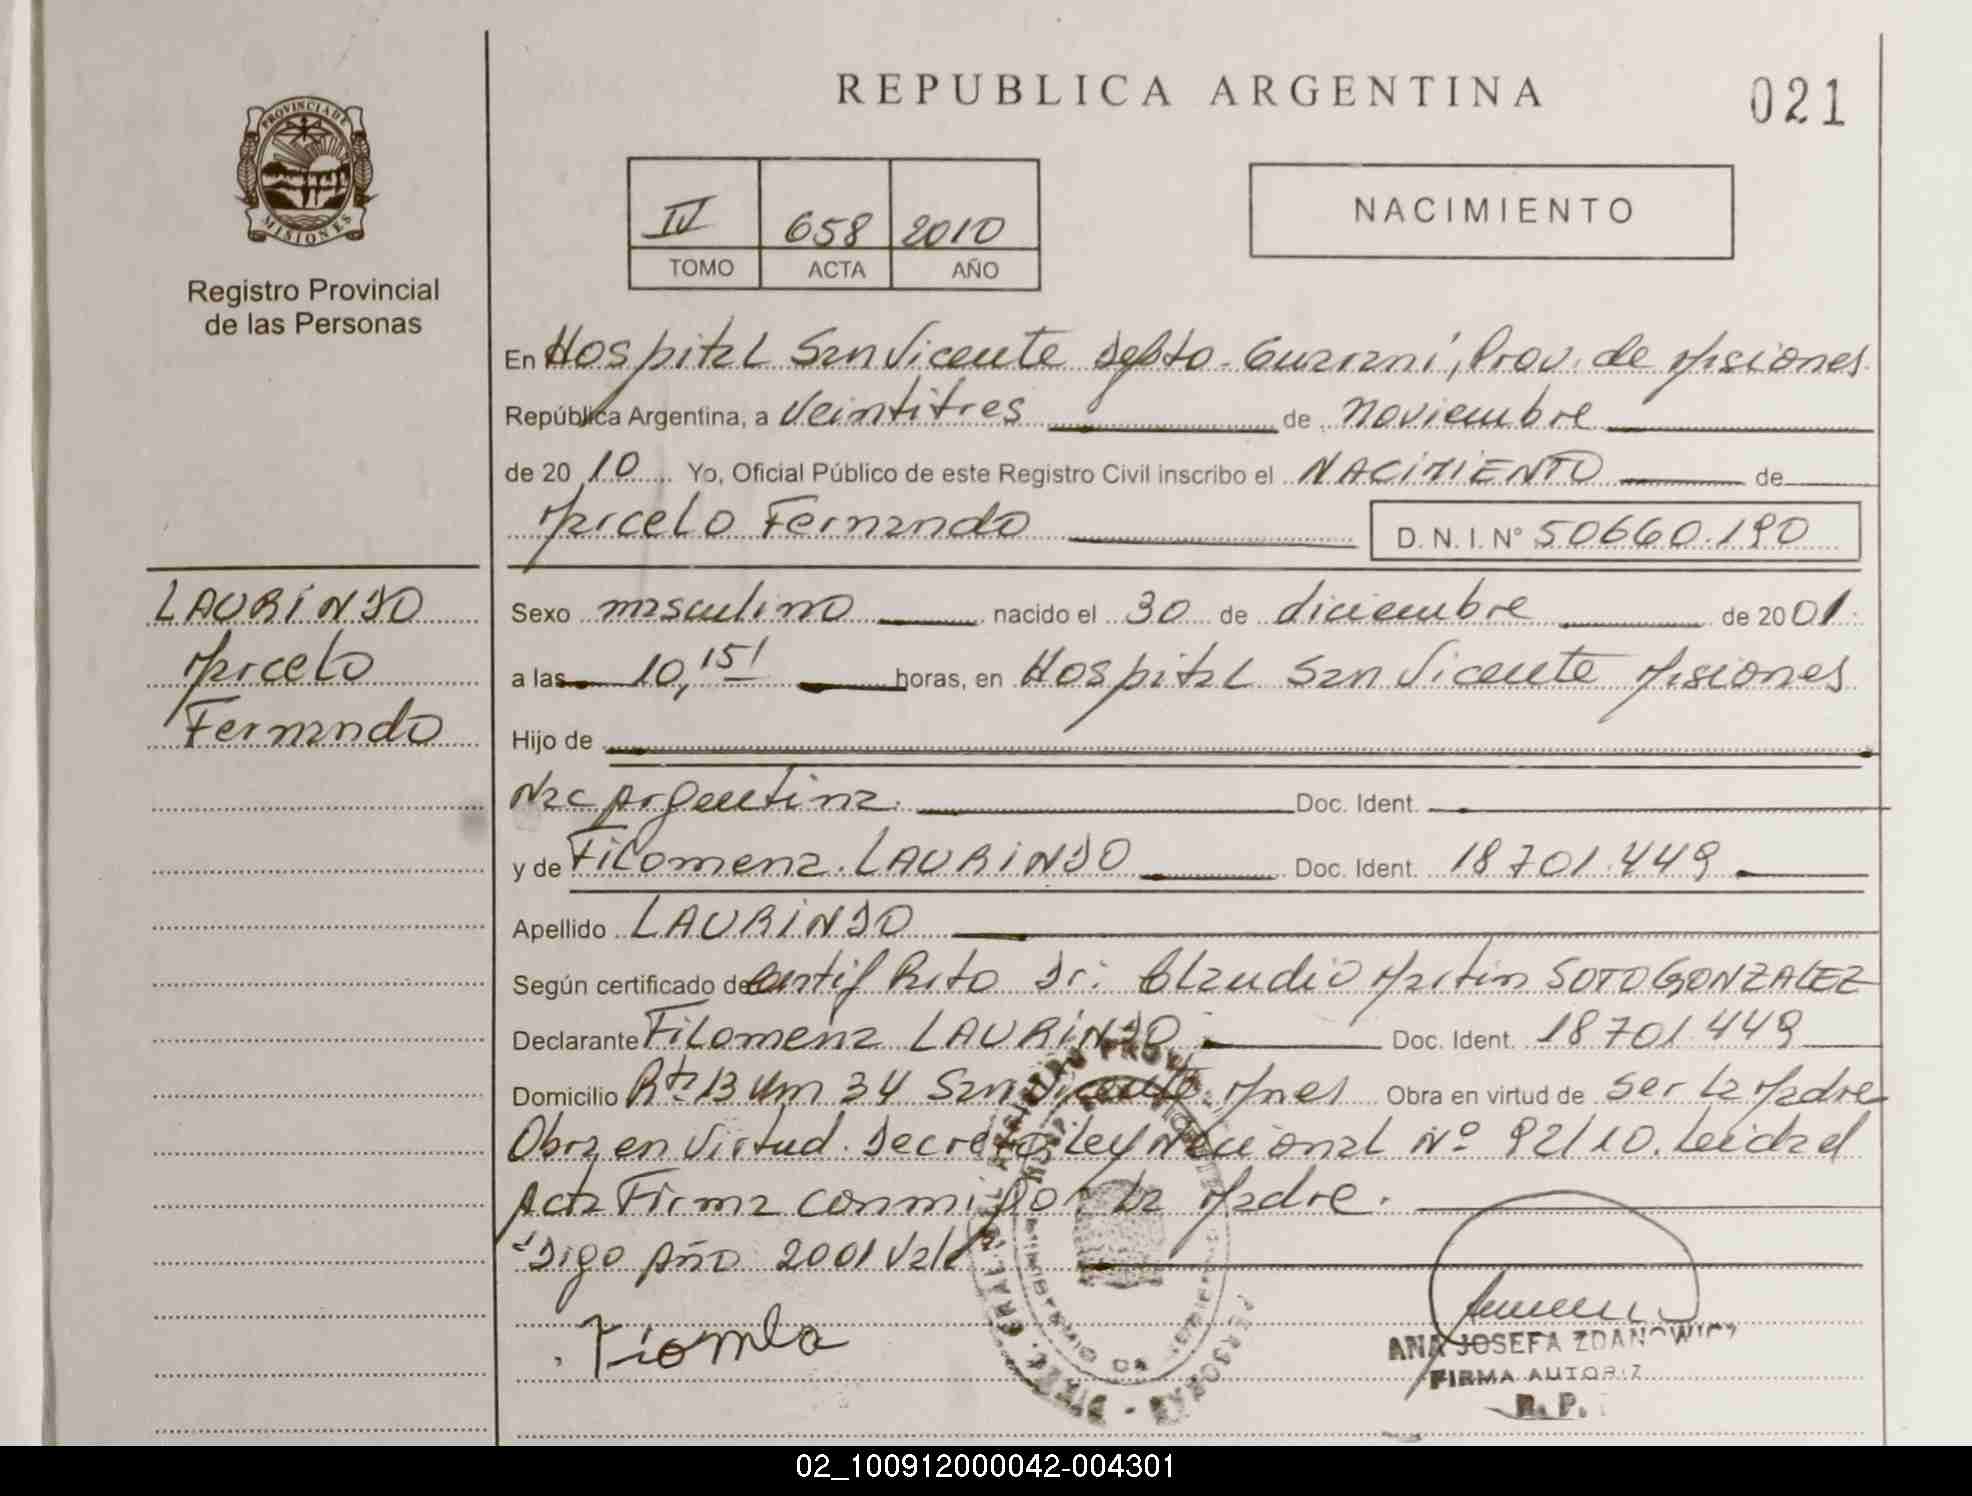 REPUBLICA ARGENTINA
021
PROVINCIA DE MISIONES
Registro Provincial
de las Personas
IV 658 2010
TOMO ACTA AÑO
NACIMIENTO
En Hospital San Vicente Depto. Guaraní, Prov. de Misiones
República Argentina, a Veintitres de Noviembre
de 20 10 Yo, Oficial Público de este Registro Civil inscribo el NACIMIENTO de
Marcelo Fernando D.N.I. Nº 50660.190
LAURINDO
Marcelo
Fernando
Sexo masculino nacido el 30 de diciembre de 20 01.
a las 10,15' horas, en Hospital San Vicente Misiones
Hijo de
Nac Argentina. Doc. Ident.
y de Filomena. LAURINDO Doc. Ident. 18701.449
Apellido LAURINDO
Según certificado de Dr. Claudio Martin SOTO GONZALEZ
Declarante Filomena LAURINDO Doc. Ident. 18701.449
Domicilio Rta 13 Km 34 San Vicente. Mnes Obra en virtud de ser la Madre
Obra en Virtud. Decreto Ley Nacional Nº 92/10. Leida el
Acta Firma conmigo la Madre.
Digo Año 2001 Vale
ANA JOSEFA ZDANOWICZ
FIRMA AUTORIZ
R. P.
02_100912000042-004301